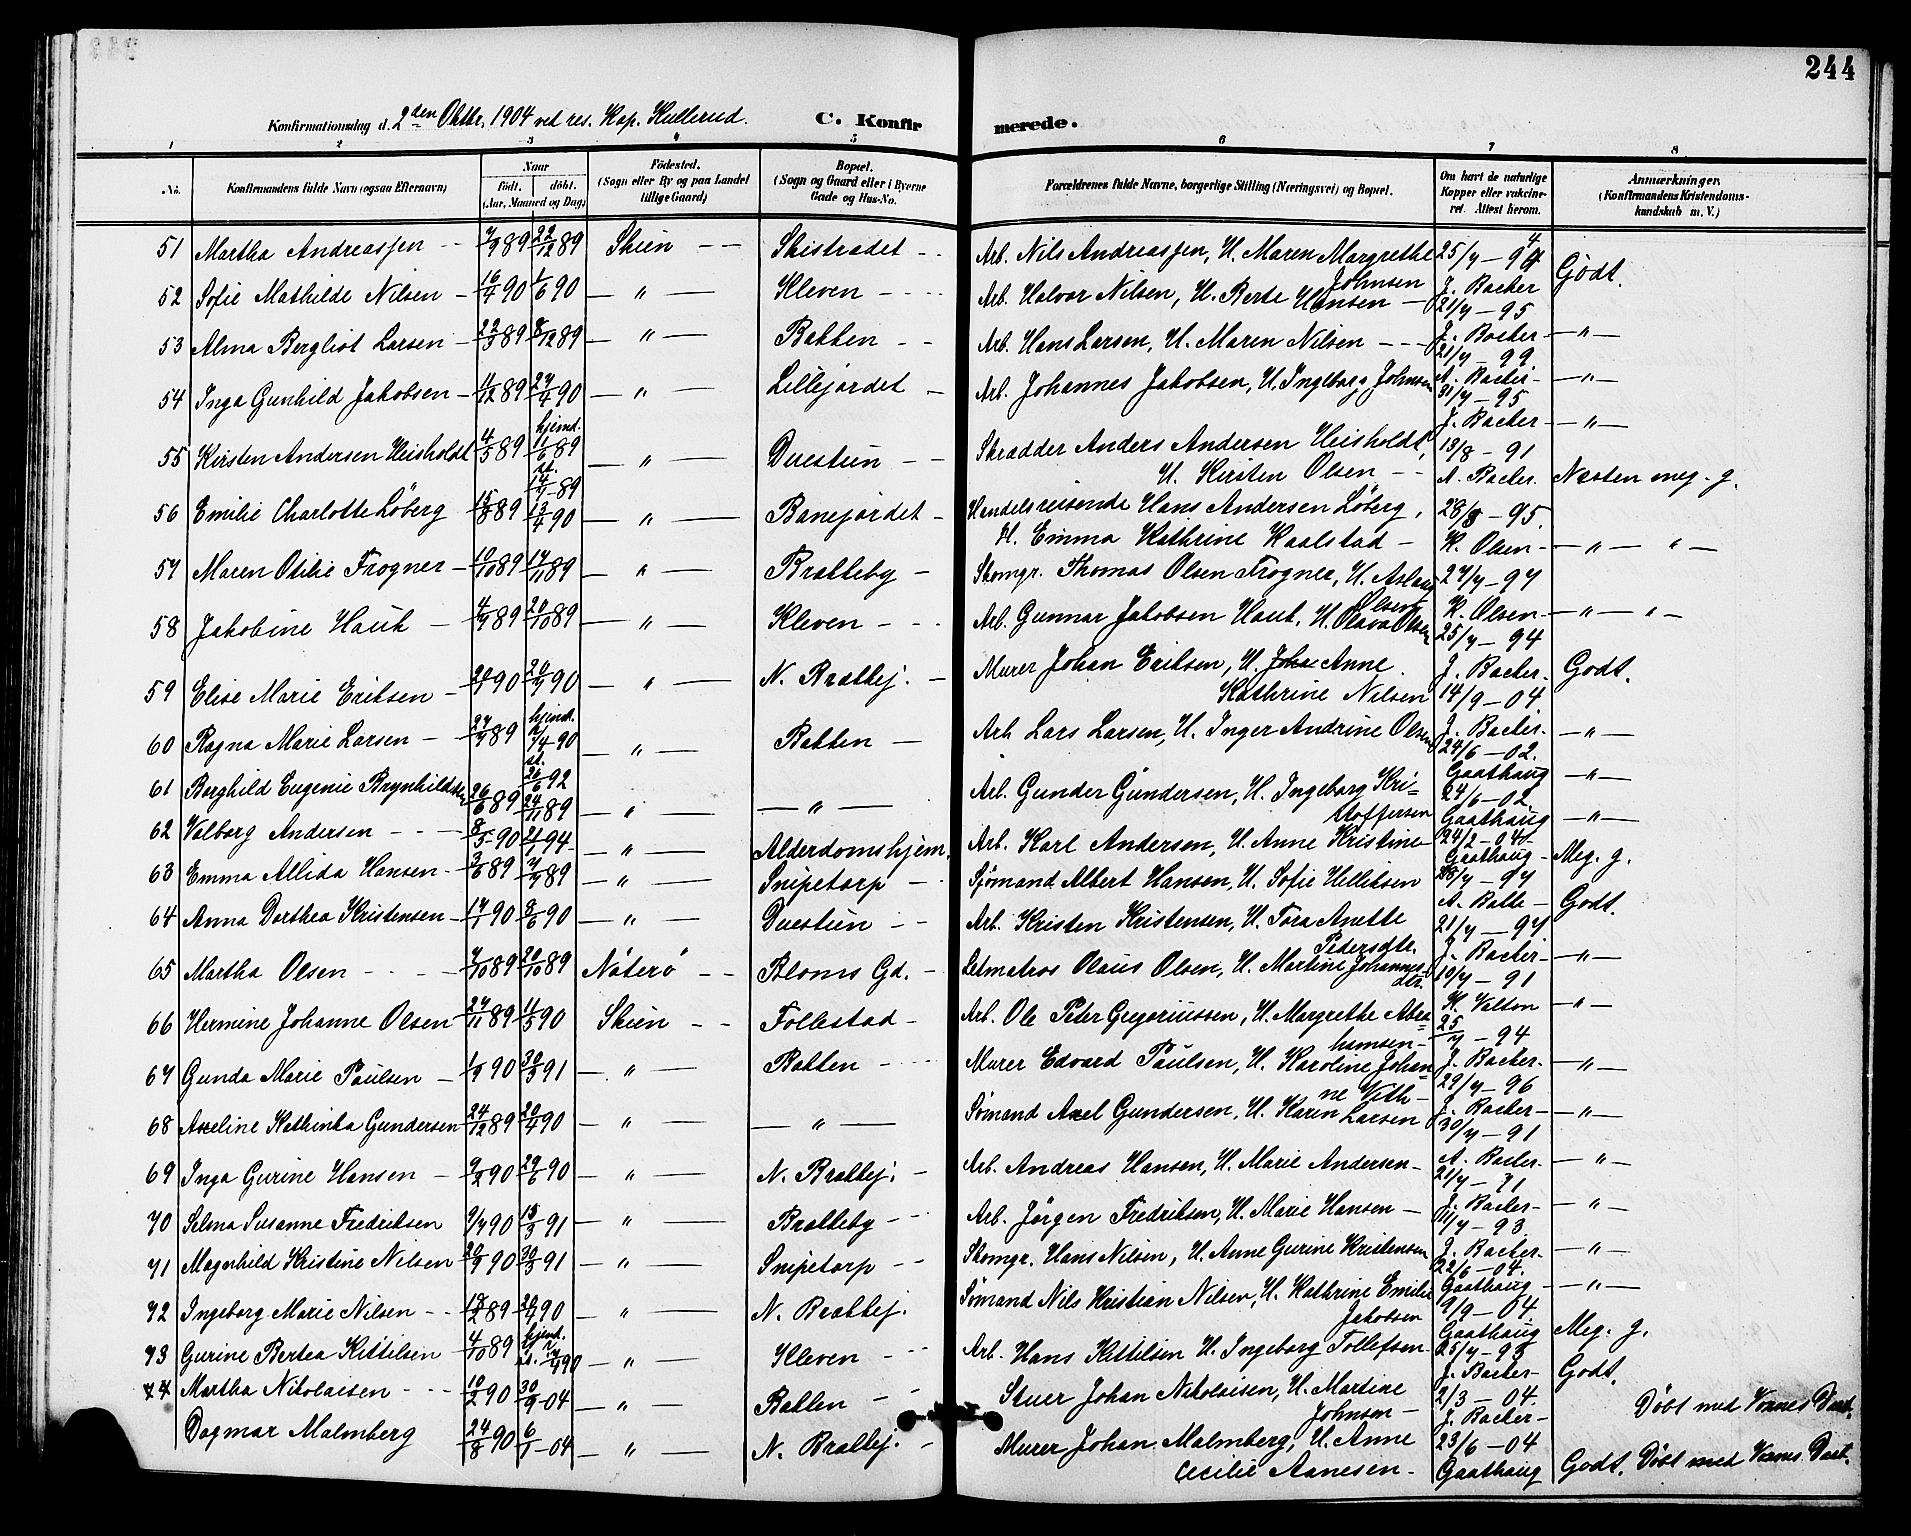 244
Konfirmationsdag d. 2den Oktbr. 1904 ved res. Kap. Kullerud. C. Konfirmerede.
1 2 3 4 5 6 7 8
No. Konfirmandens fulde Navn (ogsaa Efternavn) Naar født. døbt. (Aar, Maaned og Dag) Fødested. (Sogn eller By og paa Landet tillige Gaard) Bopæl. (Sogn og Gaard eller i Byerne Gade og Hus-No. Forældrenes fulde Navne, borgerlige Stilling (Næringsvei) og Bopæl. Om havt de naturlige Kopper eller vaccineret. Attest herom. Anmærkninger. (Konfirmandens Kristendomskundskab m. V.)
51 Martha Andreassen 7/9 89 22/12 89 Skien Skistrædet Arb. Nils Andreassen, H. Maren Margrethe Johnsen 25/7 - 94 J. Backer Godt.
52 Sofie Mathilde Nilsen 16/4 90 1/6 90 " Kleven Arb. Halvor Nilsen, H. Berte Hansen 21/7 - 95 J. Backer
53 Alma Bergliot Larsen 22/5 89 8/12 89 " Bakken Arb. Hans Larsen, H. Maren Nilsen 21/7 - 99 A. Backer "
54 Inga Gunhild Jakobsen 11/12 89 27/4 90 " Lillejordet Arb. Johannes Jakobsen, H. Ingeborg Johnsen 31/7 - 95 J. Backer "
55 Kirsten Andersen Heisholdt 4/5 89 hjemd. 11/6 89 st. 14/7 - 89 " Duestien Skrædder Anders Andersen Heisholdt, H. Kirsten Olsen 13/8 - 91 A. Backer Næsten meg. g.
56 Emilie Charlotte Löberg 15/8 89 13/4 90 " Banejordet Handelsreisende Hans Andersen Löberg, H. Emma Kathrine Kaalstad 28/8 - 95 K. Olsen " "
57 Maren Otilie Frogner 10/10 89 17/11 89 " Bratteby Skomgr. Thomas Olsen Frogner, H. Aslaug Olsen 27/7 - 97 K. Olsen " "
58 Jakobine Hauk 4/9 89 20/10 89 " Kleven Arb. Gunnar Jakobsen Hauk, H. Olava Olsen 25/7 - 94 J. Backer
59 Elise Marie Eriksen 90 90 " N. Brattej. Murer Johan Eriksen, H. Anne Kathrine Nilsen 14/9 - 04. J. Backer Godt.
60 Ragna Marie Larsen 27/9 89 hjemd. /4 - 90 st. 26/6 92 " Bakken Arb Lars Larsen, H. Inger Andrine Olsen 24/6 - 02. Gaathaug "
61 Borghild Eugenie Brynhildsen 26/6 89 24/11 89 " " Arb. Gunder Gundersen, H. Ingeborg Kristoffersen 24/6 - 02 Gaathaug "
62 Valborg Andersen 8/5 - 90 21/1 94 " Alderdomshjem. Arb. Karl Andersen, H. Anne Kristine 24/2 - 04 Gaathaug "
63 Emma Allida Hansen 3/6 89 7/7 89 " Snipetorp Sjömand Albert Hansen, H. Sofie Helliksen 28/7 - 97 A. Bolte Meg. g.
64 Anna Dorthea Kristensen 17/1 90 8/6 90 " Duestien Arb. Kristen Kristensen, H. Tora Anette Pedersdtr. 21/7 - 97 J. Backer Godt.
65 Martha Olsen 7/10 89 20/10 89 Nöterö Bloms Gd. Letmatros Olaus Olsen, H. Martine Johannesdtr. 10/7 - 91 K. Velton "
66 Hermine Johanne Olsen 27/11 89 11/5 90 Skien Follestad Arb. Ole Peter Gregoriussen, H. Margrethe Abrahamsen 25/7 - 94 J. Backer "
67 Gunda Marie Paulsen 1/9 90 30/3 91 " Bakken Murer Edvard Paulsen, H. Karoline Johanne Veth 29/7 - 96 J. Backer "
68 Axeline Kathinka Gundersen 24/12 89 20/4 90 " " Sömand Axel Gundersen, H. Karen Larsen 30/7 - 91 A. Backer "
69 Inga Gurine Hansen 9/2 90 29/6 90 " N. Brattej. Arb. Andreas Hansen, H. Marie Andersen 21/7 - 91 J. Backer "
70 Selma Susanne Fredriksen 9/7 90 15/3 91 " Bratteby Arb. Jörgen Fredriksen, H. Marie Hansen 11/7 - 93 J. Backer "
71 Magnhild Kristine Nilsen 20/9 90 30/3 91 " Snipetorp Skomgr. Hans Nilsen, H. Anne Gurine Kristensen 22/6 - 04. Gaathaug "
72 Ingeborg Marie Nilsen 89 90 " N. Brattej. Sömand Nils Kristian Nilsen, H. Kathrine Emilie Jakobsen 9/9 - 04 Gaathaug "
73 Gurine Bertea Kittilsen 4/10 89 hjemd. st. 90 " Kleven Arb. Hans Kittilsen H. Ingeborg Tollefsen 25/7 - 93 J. Backer Meg. g.
74 Martha Nikolaisen 10/2 90 30/9 - 04 " Bakken Stuer Johan Nikolaisen, H. Martine Johnsen 2/3 - 04. J. Backer Godt. Döbt med Voxnes Daab.
Dagmar Malmberg 24/8 90 6/1 - 04 " N. Brattej. Murer Johan Malmberg, H. Anne Cecilie Aanesen 23/6 - 04 Gaathaug Godt. Döbt med Voxnes Daab.